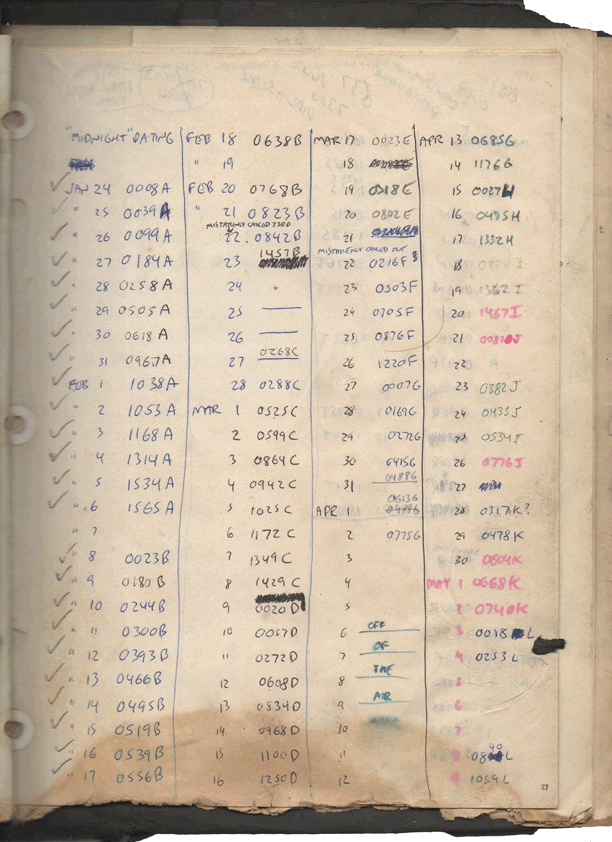 "MIDNIGHT" DATING
JAN 24 0008A
" 25 0039A
" 26 0099A
" 27 0184A
" 28 0258A
" 29 0505A
" 30 0618A
" 31 0967A
FEB 1 1038A
" 2 1053A
" 3 1168A
" 4 1314A
" 5 1534A
" 6 1565A
" 7
" 8 0023B
" 9 0180B
" 10 0244B
" 11 0300B
" 12 0393B
" 13 0466B
" 14 0495B
" 15 0519B
" 16 0539B
" 17 0556B
FEB 18 0638B
" 19
FEB 20 0768B
" 21 0823B
MISTAKENLY CALLED 23RD
22. 0842B
23 1457B
24
25
26
27 0268C
28 0288C
MAR 1 0525C
2 0599C
3 0864C
4 0942C
5 1025C
6 1172C
7 1349C
8 1429C
9 0020D
10 0057D
11 0272D
12 0608D
13 0834D
14 0968D
15 1100D
16 1250D
MAR 17 0023E
18
19 0518E
20 0802E
21
MISTAKENLY CALLED 21ST
22 0216F
23 0503F
24 0705F
25 0876F
26 1220F
27 0007G
28 0169G
29 0272G
30 0415G
31 0488G
0513G
APR 1 0488G
2 0775G
3
4
5
6 OFF
7 OF
8 THE
9 AIR
10
11
12
APR 13 0685G
14 1176G
15 0027H
16 0495H
17 1332H
18 0884I
19 1362I
20 1467I
21 0087J
22
23 0382J
24 0435J
25 0534J
26 0776J
27
28 0317K?
29 0478K
30 0604K
MAY 1 0668K
2 0740K
3 0018L
4 0253L
5
6
7
8 0840L
9 1059L